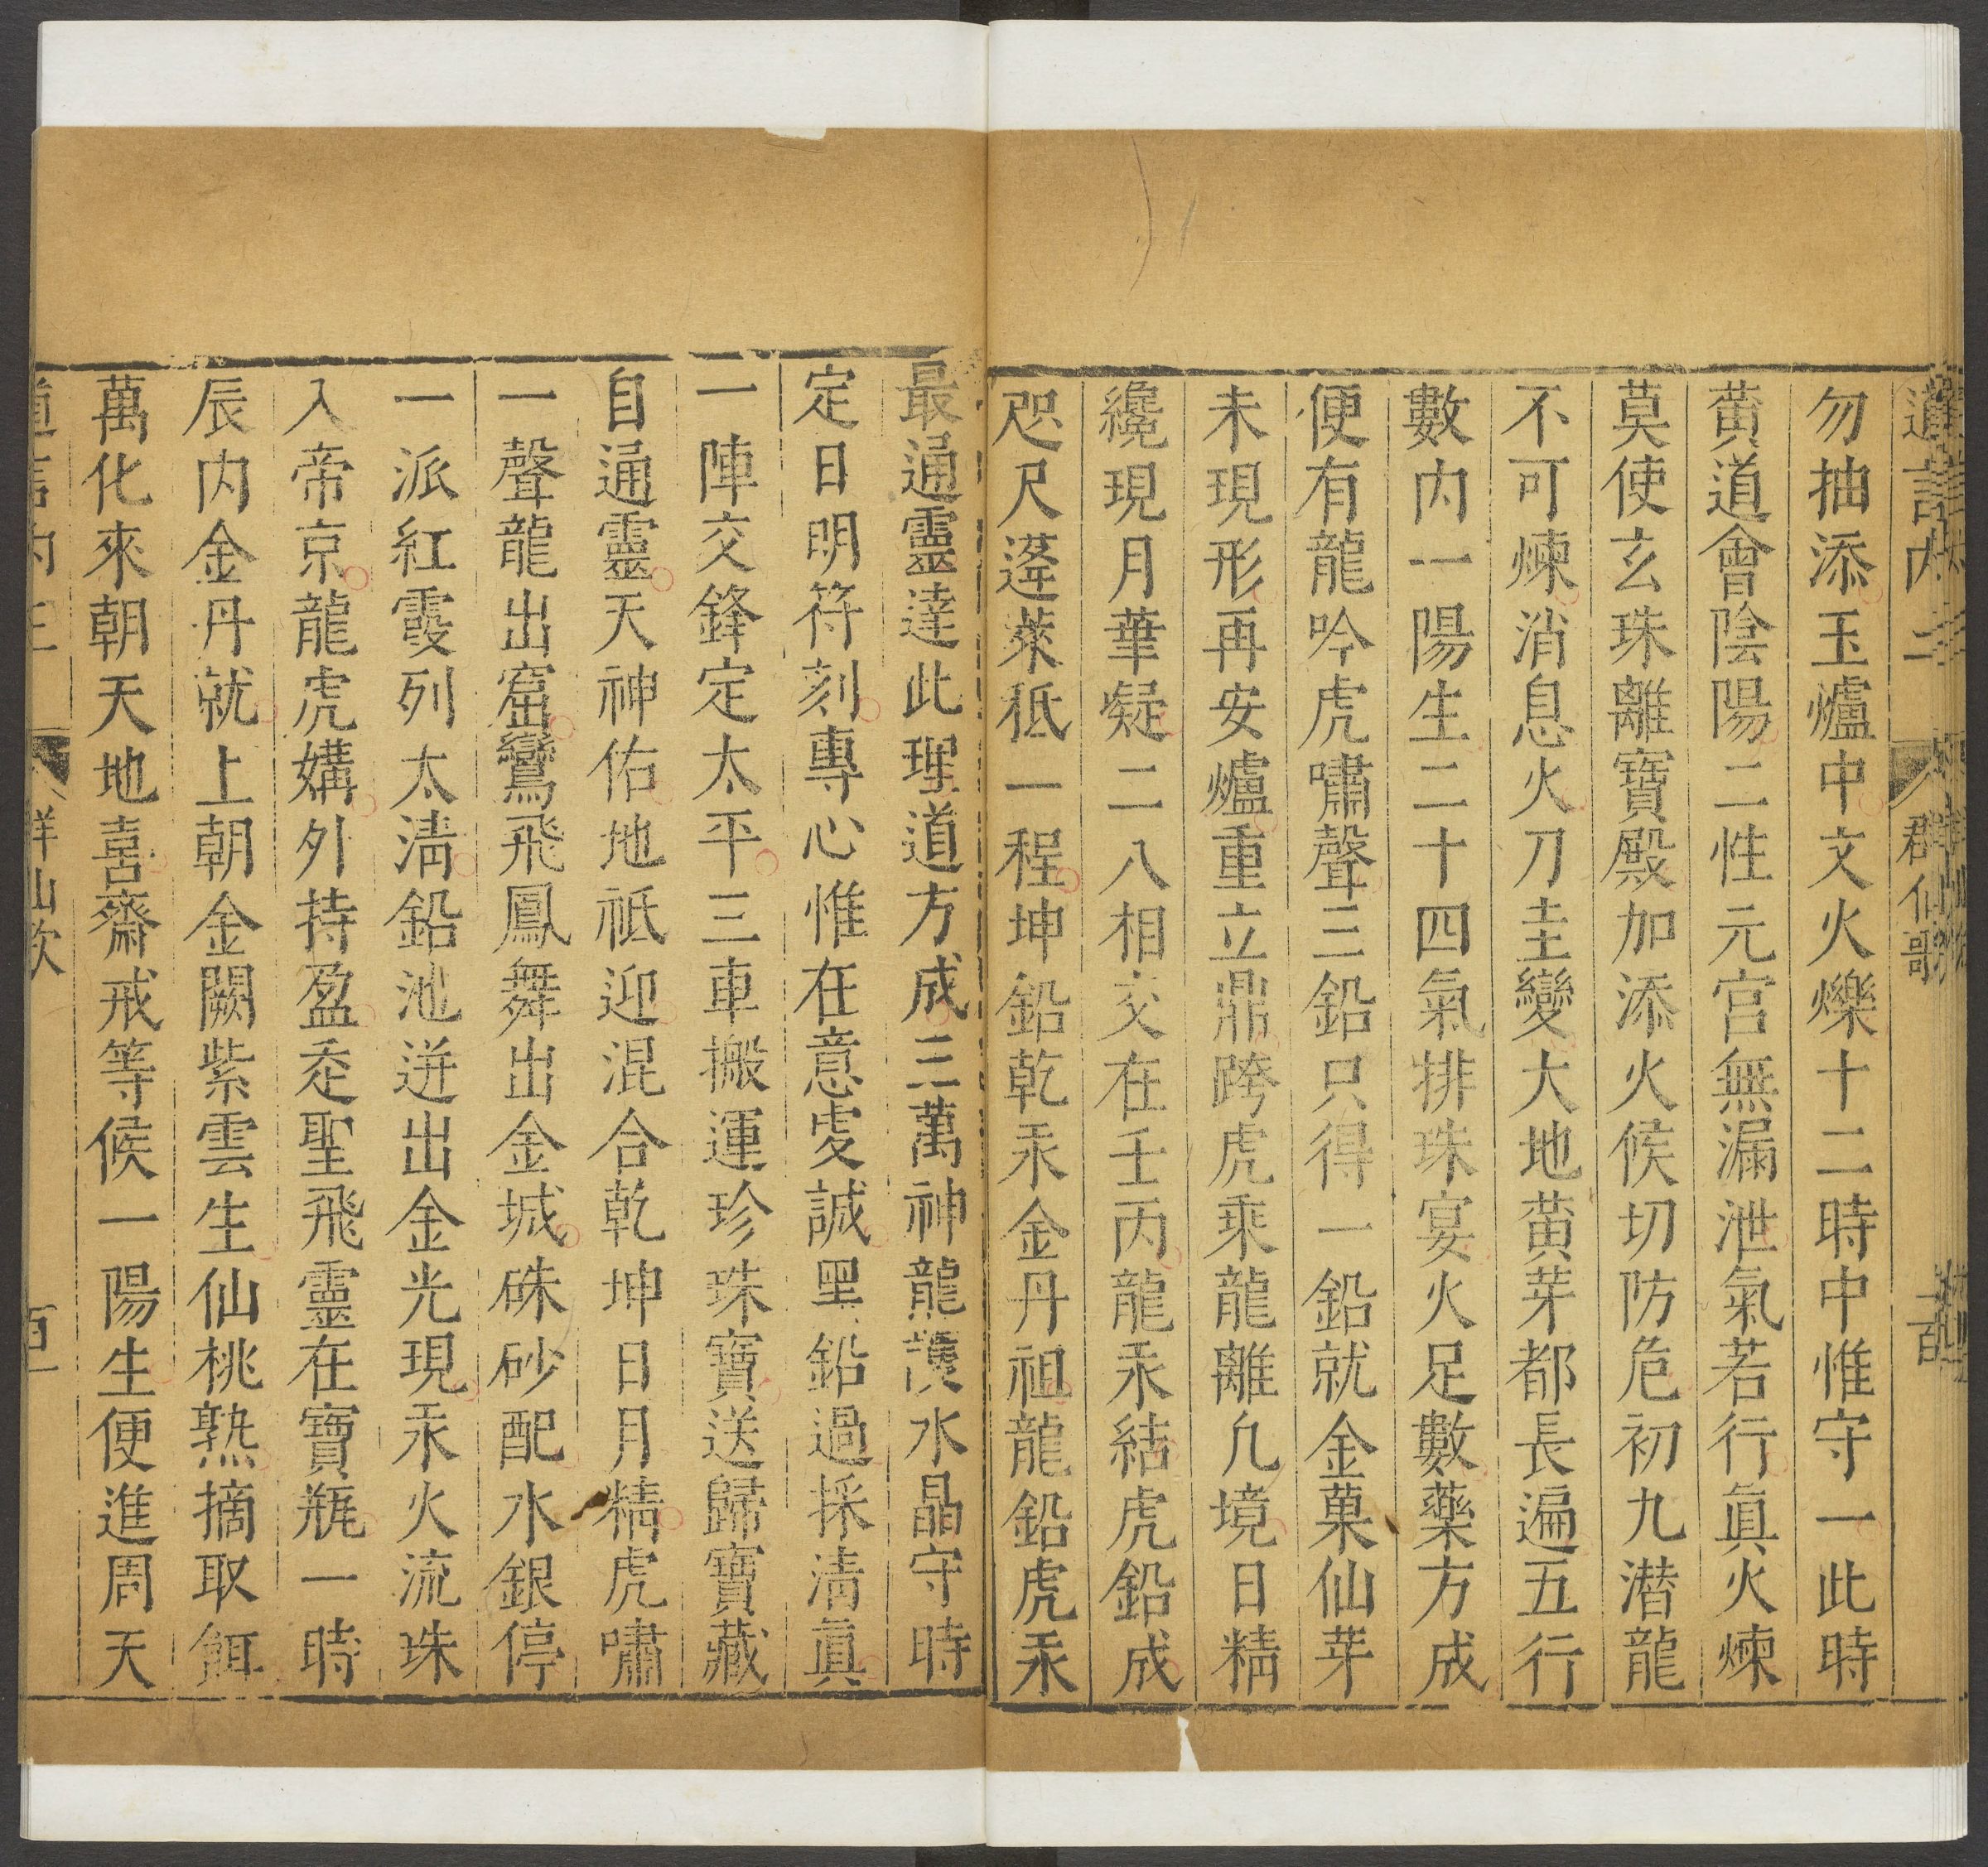 道言内 二 群仙歌
勿抽添玉爐中文火爍十二時中惟守一此時
黄道會陰陽二性元宫無漏泄氣若行眞火煉
莫使玄珠離寶殿加添火候切防危初九潛龍
不可煉消息火刀圭變大地黄芽都長遍五行
數内一陽生二十四氣排珠宴火足數藥方成
便有龍吟虎嘯聲三鉛只得一鉛就金菓仙芽
未現形再安爐重立鼎跨虎乘龍離凢境日精
纔現月華凝二八相交在壬丙龍汞結虎鉛成
咫尺蓬萊秪一程坤鉛乾汞金丹祖龍鉛虎汞
最通靈達此理道方成三萬神龍護水晶守時
定日明符刻專心惟在意虔誠黑鉛過採清眞
一陣交鋒定太平三車搬運珍珠寶送歸寶藏
自通靈天神佑地祇迎混合乾坤日月精虎嘯
一聲龍出窟鸞飛鳳舞出金城硃砂配水銀停
一派紅霞列太清鉛池迸出金光現汞火流珠
入帝京龍虎媾外持盈走聖飛靈在寶瓶一時
辰内金丹就上朝金闕紫雲生仙桃熟摘取餌
萬化來朝天地喜齋戒等候一陽生便進周天